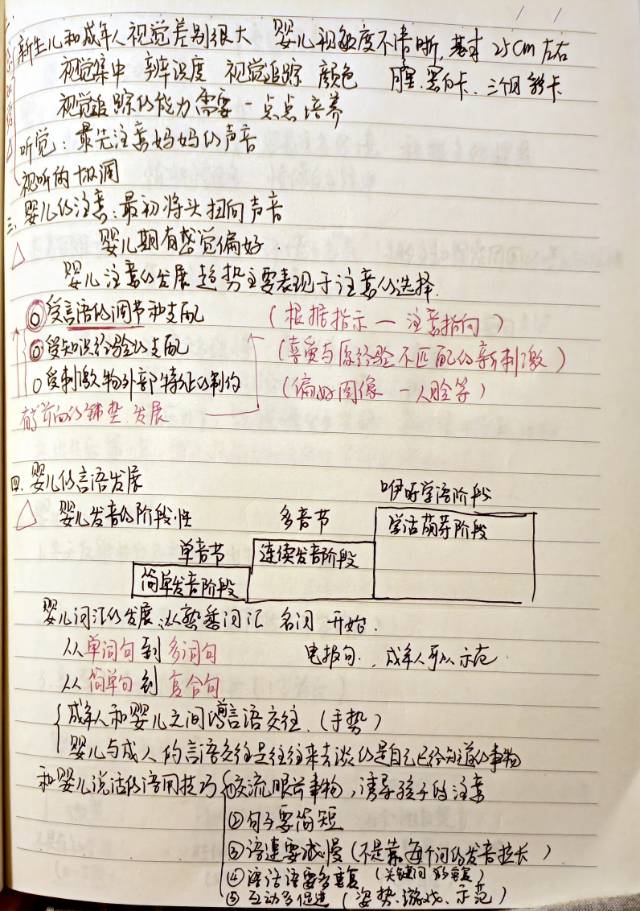 新生儿和成年人视觉差别很大 婴儿视敏度不清晰,基本25cm左右
视觉集中 视觉追踪 颜色 黑白卡、三个月彩卡
视觉追踪的能力需要一点点培养
听觉:最先注意妈妈的声音
视听的协调
三、婴儿的注意:最初将头扭向声音
婴儿期有感觉偏好
婴儿注意的发展趋势主要表现于注意的选择
受言语的调节和支配 (根据指示—注意指向)
受知识经验的支配 (喜爱与原经验不匹配的新刺激)
受刺激物外部特征的制约 (偏好图像—人脸等)
发展
四.婴儿的言语发展
咿呀学语阶段
婴儿发音的阶段性 多音节 学话萌芽阶段
单音节 连续发音阶段
简单发音阶段
婴儿词汇的发展,从熟悉词汇 名词 开始.
从单词句到多词句 电报句,成年人可以示范.
从简单句到复合句
成年人和婴儿之间的言语交往(手势)
婴儿与成人的言语交往是往往来去谈的是自己已经知道的事物
和婴儿说话的语用技巧 ①交流眼前事物,诱导孩子的注意
②句子要简短
③语速要减慢(不是靠每个词的发音拉长)
④话语要多重复(关键词 的重复)
⑤互动多促进(姿势、游戏、示范)